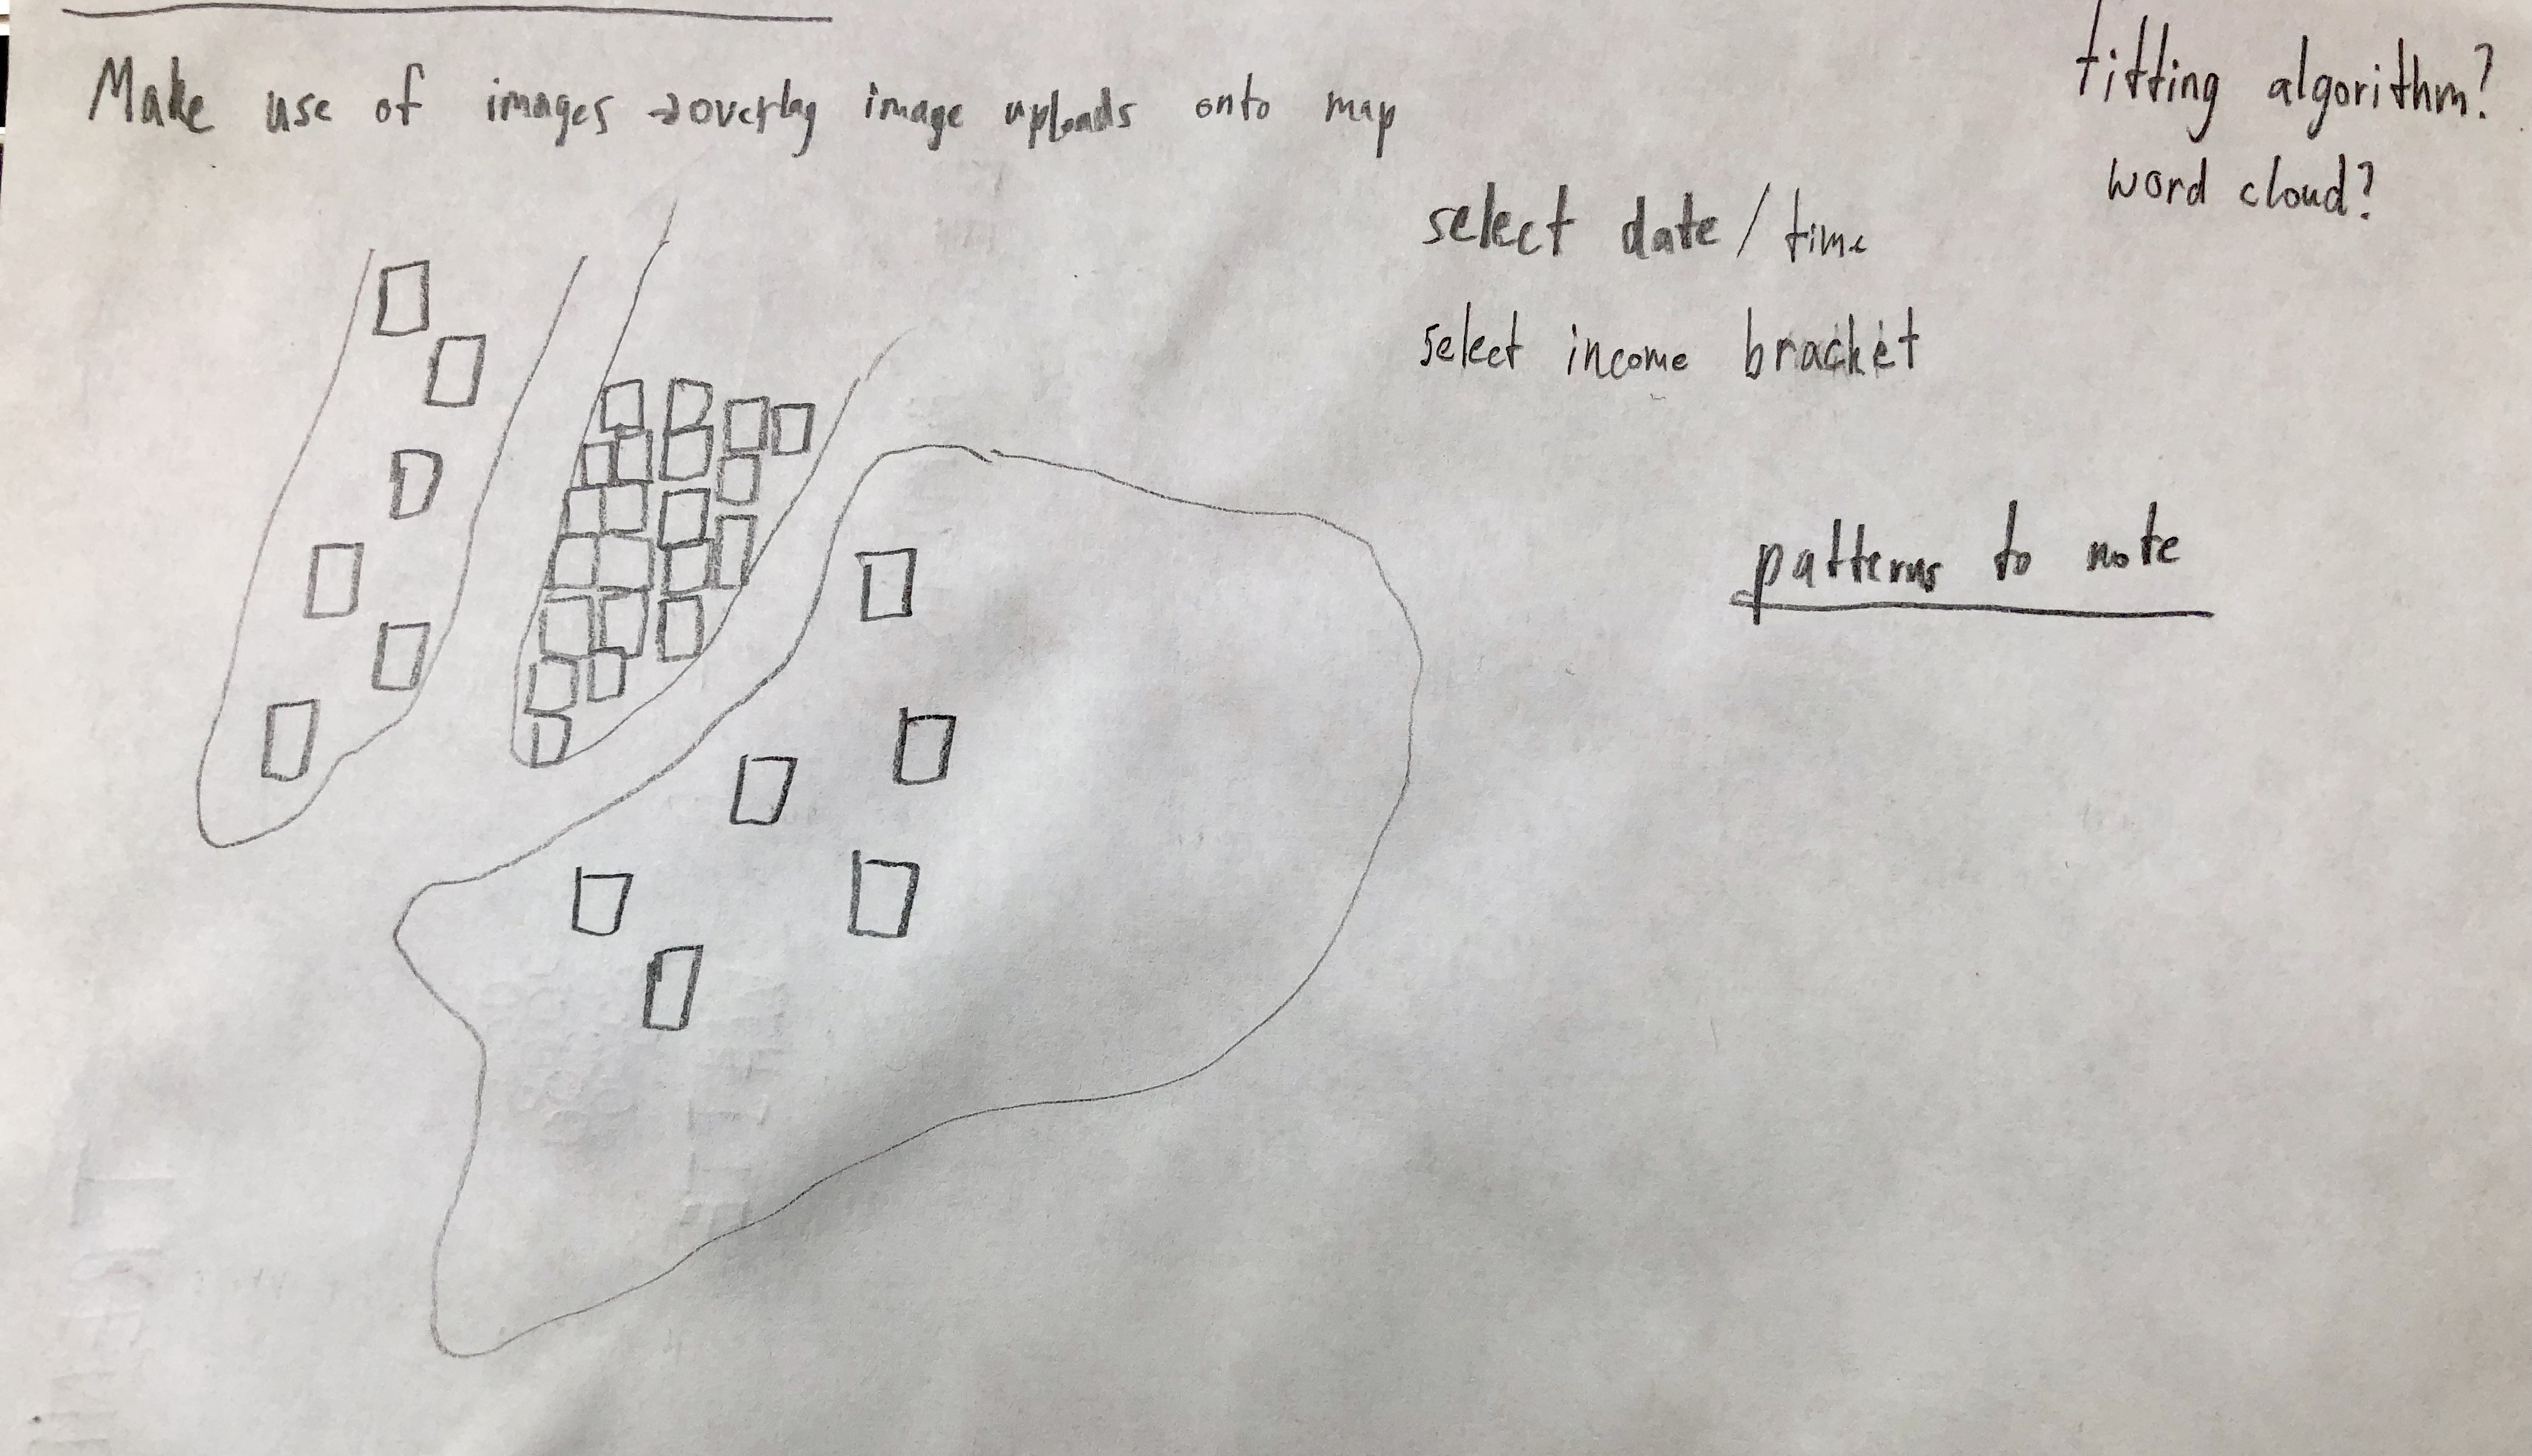 Make use of images → overlay image uploads onto map
fitting algorithm?
word cloud?
select date / time
select income bracket
patterns to note